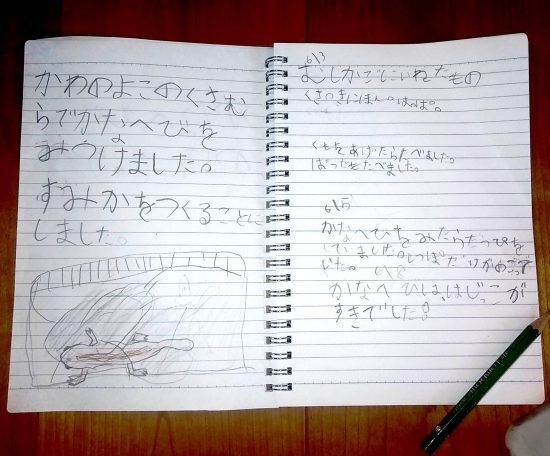 かわのよこのくさむ
らでかなへびを
みつけました。
すみかをつくることに
しました。
6/3
むしかごにいれたもの
くさ。き。にほん。はっぱ。
くもをあげたらたべました。
ばったもたべました。
6/5
かなへびをみたらだっぴを
していました。しっぽだけが
でした。
6/8
かなへびは、はじっこが
すきでした。